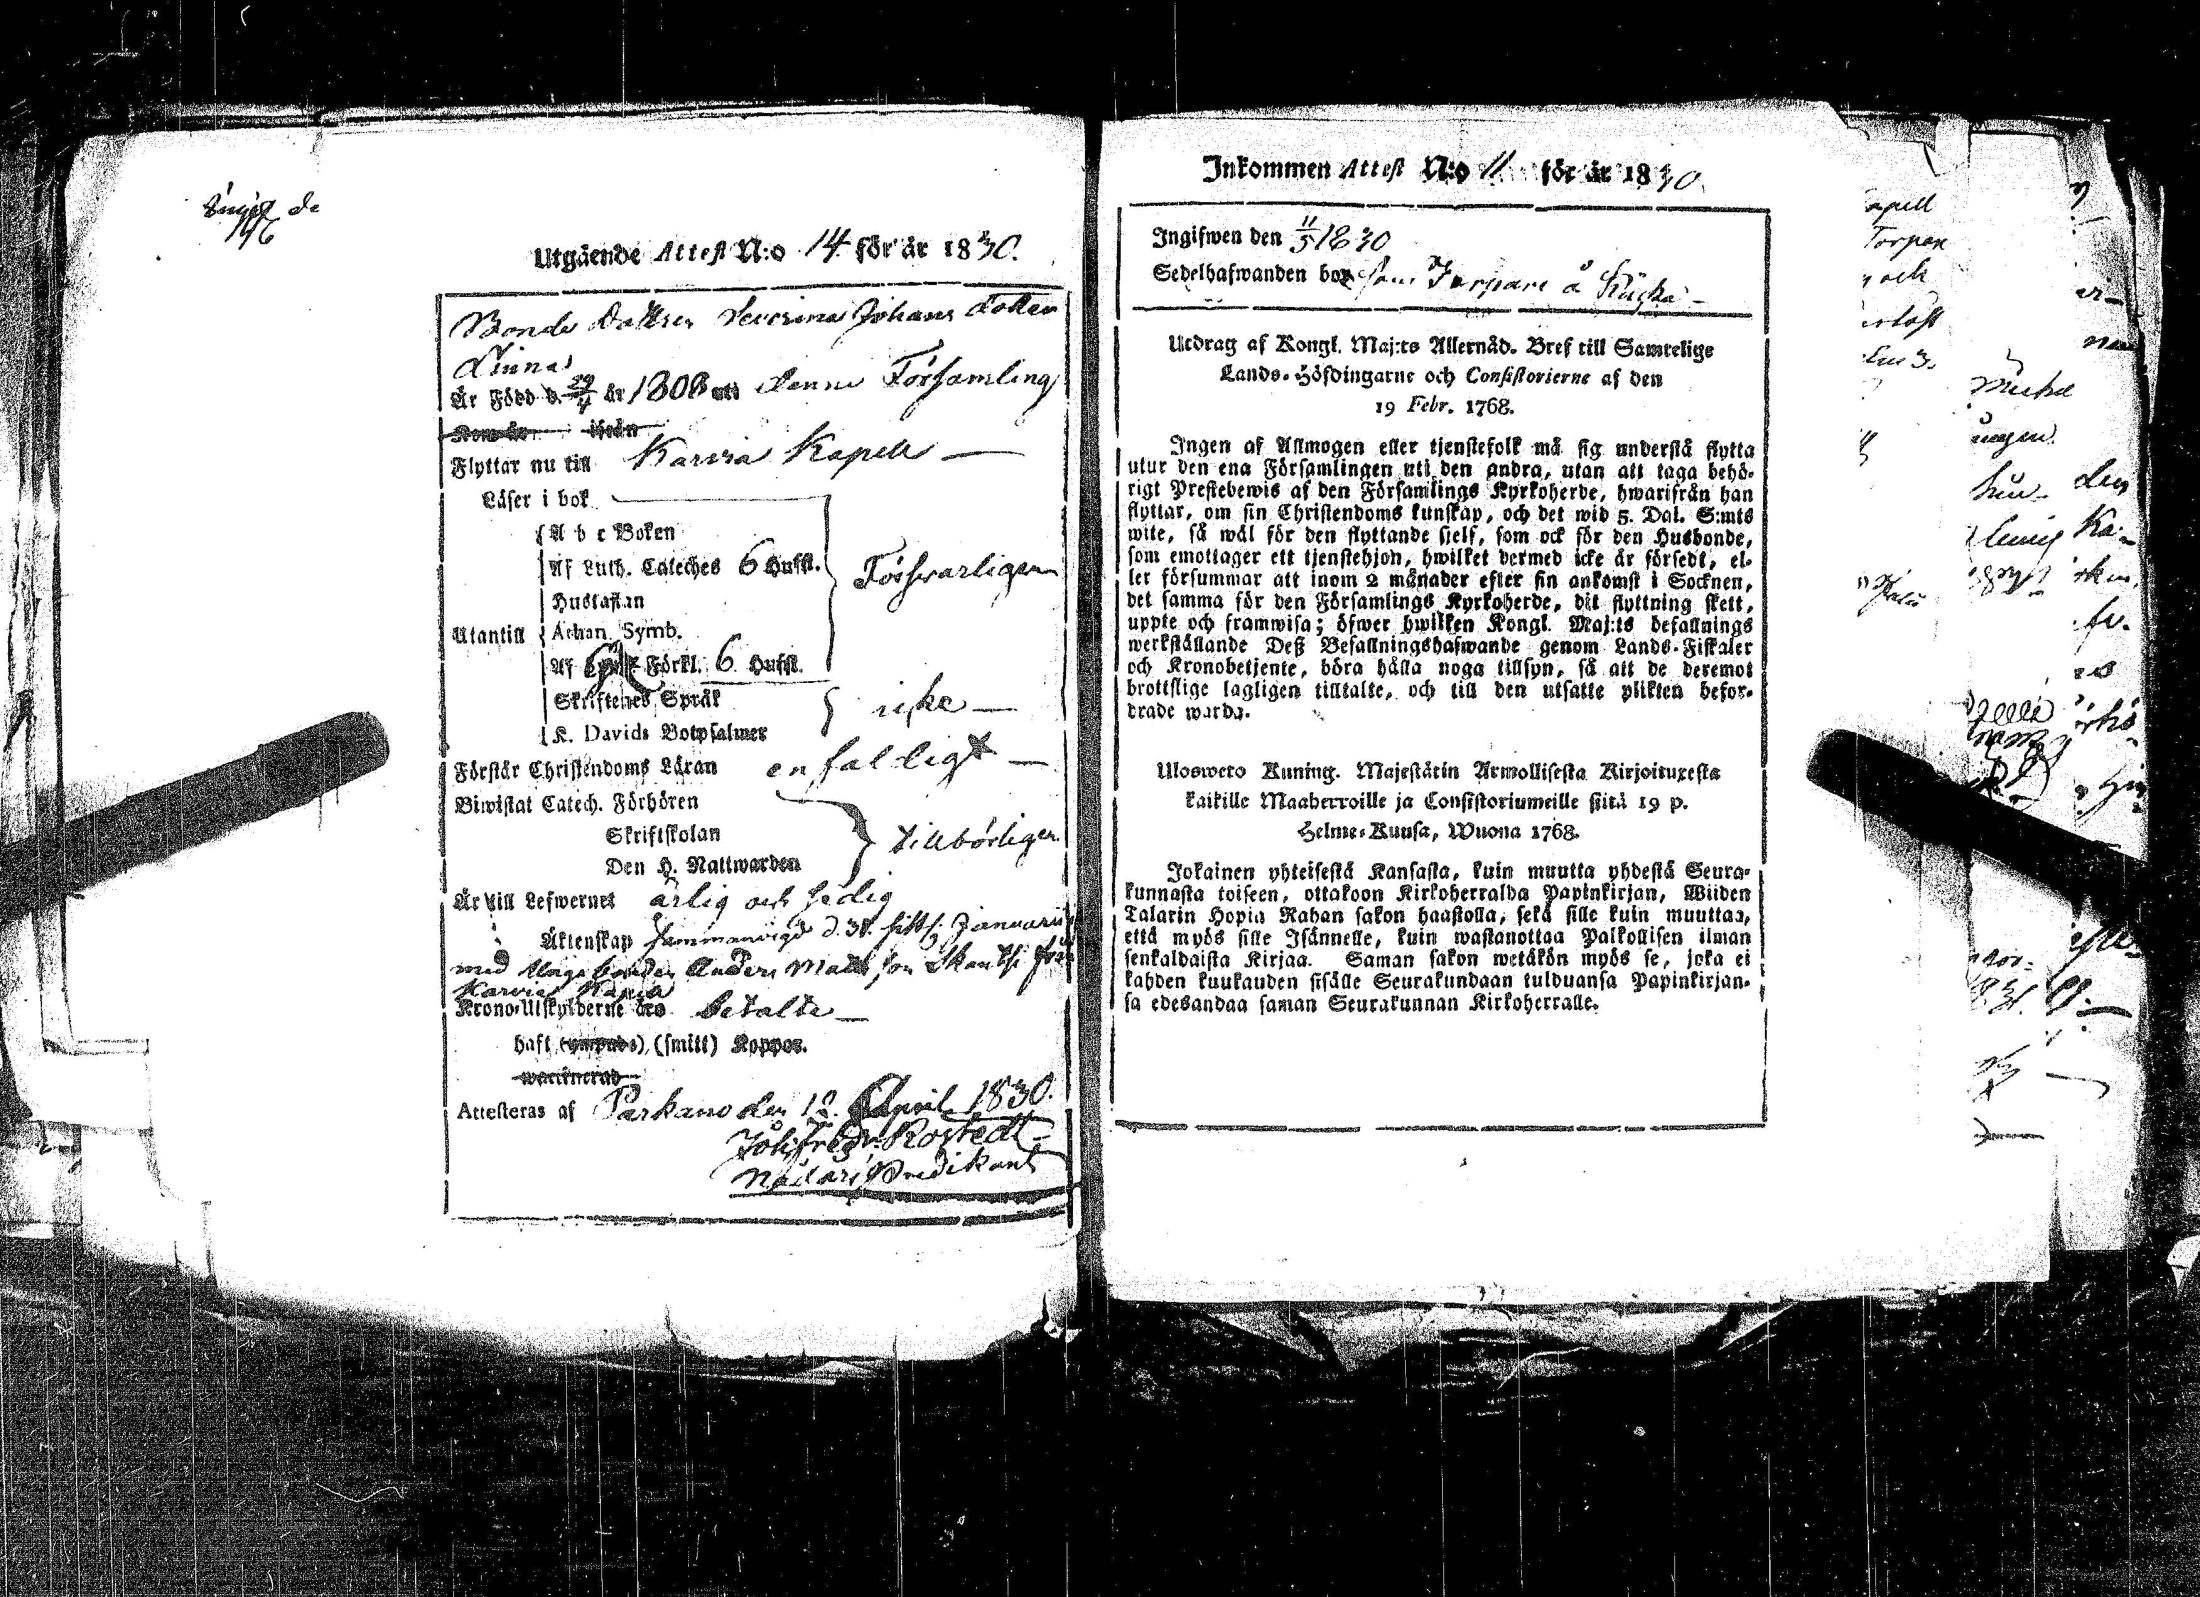 Utgående Attest N:o 14 för år 1830.
Bonde Dottren Severina Johans Dotter
Linna
Är Född d. 29/4 år 1808 uti denna Församling
Kom år ifrån
Flyttar nu till Karvia Kapell —
Läser i bok
A b c Boken
Af Luth. Cateches 6 Hufst.
Hustaflan
Försvarligen
Utantill
Athan. Symb.
Af Förkl. 6 Hufst.
Skriftenes Språk
icke —
K. Davids Botpsalmer
Förstår Christendoms Läran enfaldigt —
Biwistat Catech. Förhören
Skriftskolan
tillbörligen
Den H. Nattwarden
Är till Lefwernet ärlig och sedig
Äktenskap Sammanvigd d. 31. sistl. Januarii
med Unga bonden Anders Matts son Skantsi från
Karvia Kapell
Krono-Utskylderne äro betalte —
haft (ympade) (smitt) Koppor.
waccinerad
Attesteras af Parkano den 12. April 1830.
Joh: Fredr: Rostedt
Nådårs Predikant
Inkommen Attest N:o 11 för år 1830.
Ingifwen den 11/5 1830
Sedelhafwanden bor som Torpare å
Utdrag af Kongl. Maj:ts Allernåd. Bref till Samtelige
Lands-Höfdingarne och Consistorierne af den
19 Febr. 1768.
Ingen af Allmogen eller tjenstefolk må sig understå flytta
utur den ena Församlingen uti den andra, utan att taga behö-
rigt Prestebewis af den Församlings Kyrkoherde, hwarifrån han
flyttar, om sin Christendoms kunskap, och det wid 5. Dal. S:mts
wite, så wäl för den flyttande sjelf, som ock för den Husbonde,
som emottager ett tjenstehjon, hwilket dermed icke är försedt, el-
ler försummar att inom 2 månader efter sin ankomst i Socknen,
det samma för den Församlings Kyrkoherde, dit flyttning skett,
uppte och framwisa; öfwer hwilken Kongl. Maj:ts befallnings
werkställande Deß Befallningshafwande genom Lands-Fiskaler
och Kronobetjente, böra hålla noga tillsyn, så att de deremot
brottslige lagligen tilltalte, och till den utsatte plikten befor-
drade warda.
Ulosweto Kuning. Majestätin Armollisesta Kirjoituxesta
kaikille Maaherroille ja Consistoriumeille siitä 19 p.
Helme-Kuusa, Wuona 1768.
Jokainen yhteisestä Kansasta, kuin muutta yhdestä Seura-
kunnasta toiseen, ottakoon Kirkoherralda Papinkirjan, Wiiden
Talarin Hopia Rahan sakon haastolla, sekä sille kuin muuttaa,
että myös sille Isännelle, kuin wastanottaa Palkollisen ilman
senkaldaista Kirjaa. Saman sakon wetäkön myös se, joka ei
kahden kuukauden sisälle Seurakundaan tulduansa Papinkirjan-
sa edesandaa saman Seurakunnan Kirkoherralle.